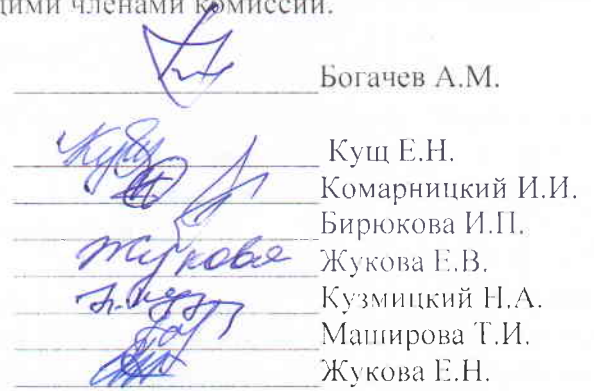 щими членами комиссии.
Богачев А.М.
Кущ Е.Н.
Комарницкий И.И.
Бирюкова И.П.
Жукова Жукова Е.В.
Кузмицкий Н.А.
Маширова Т.И.
Жукова Е.Н.